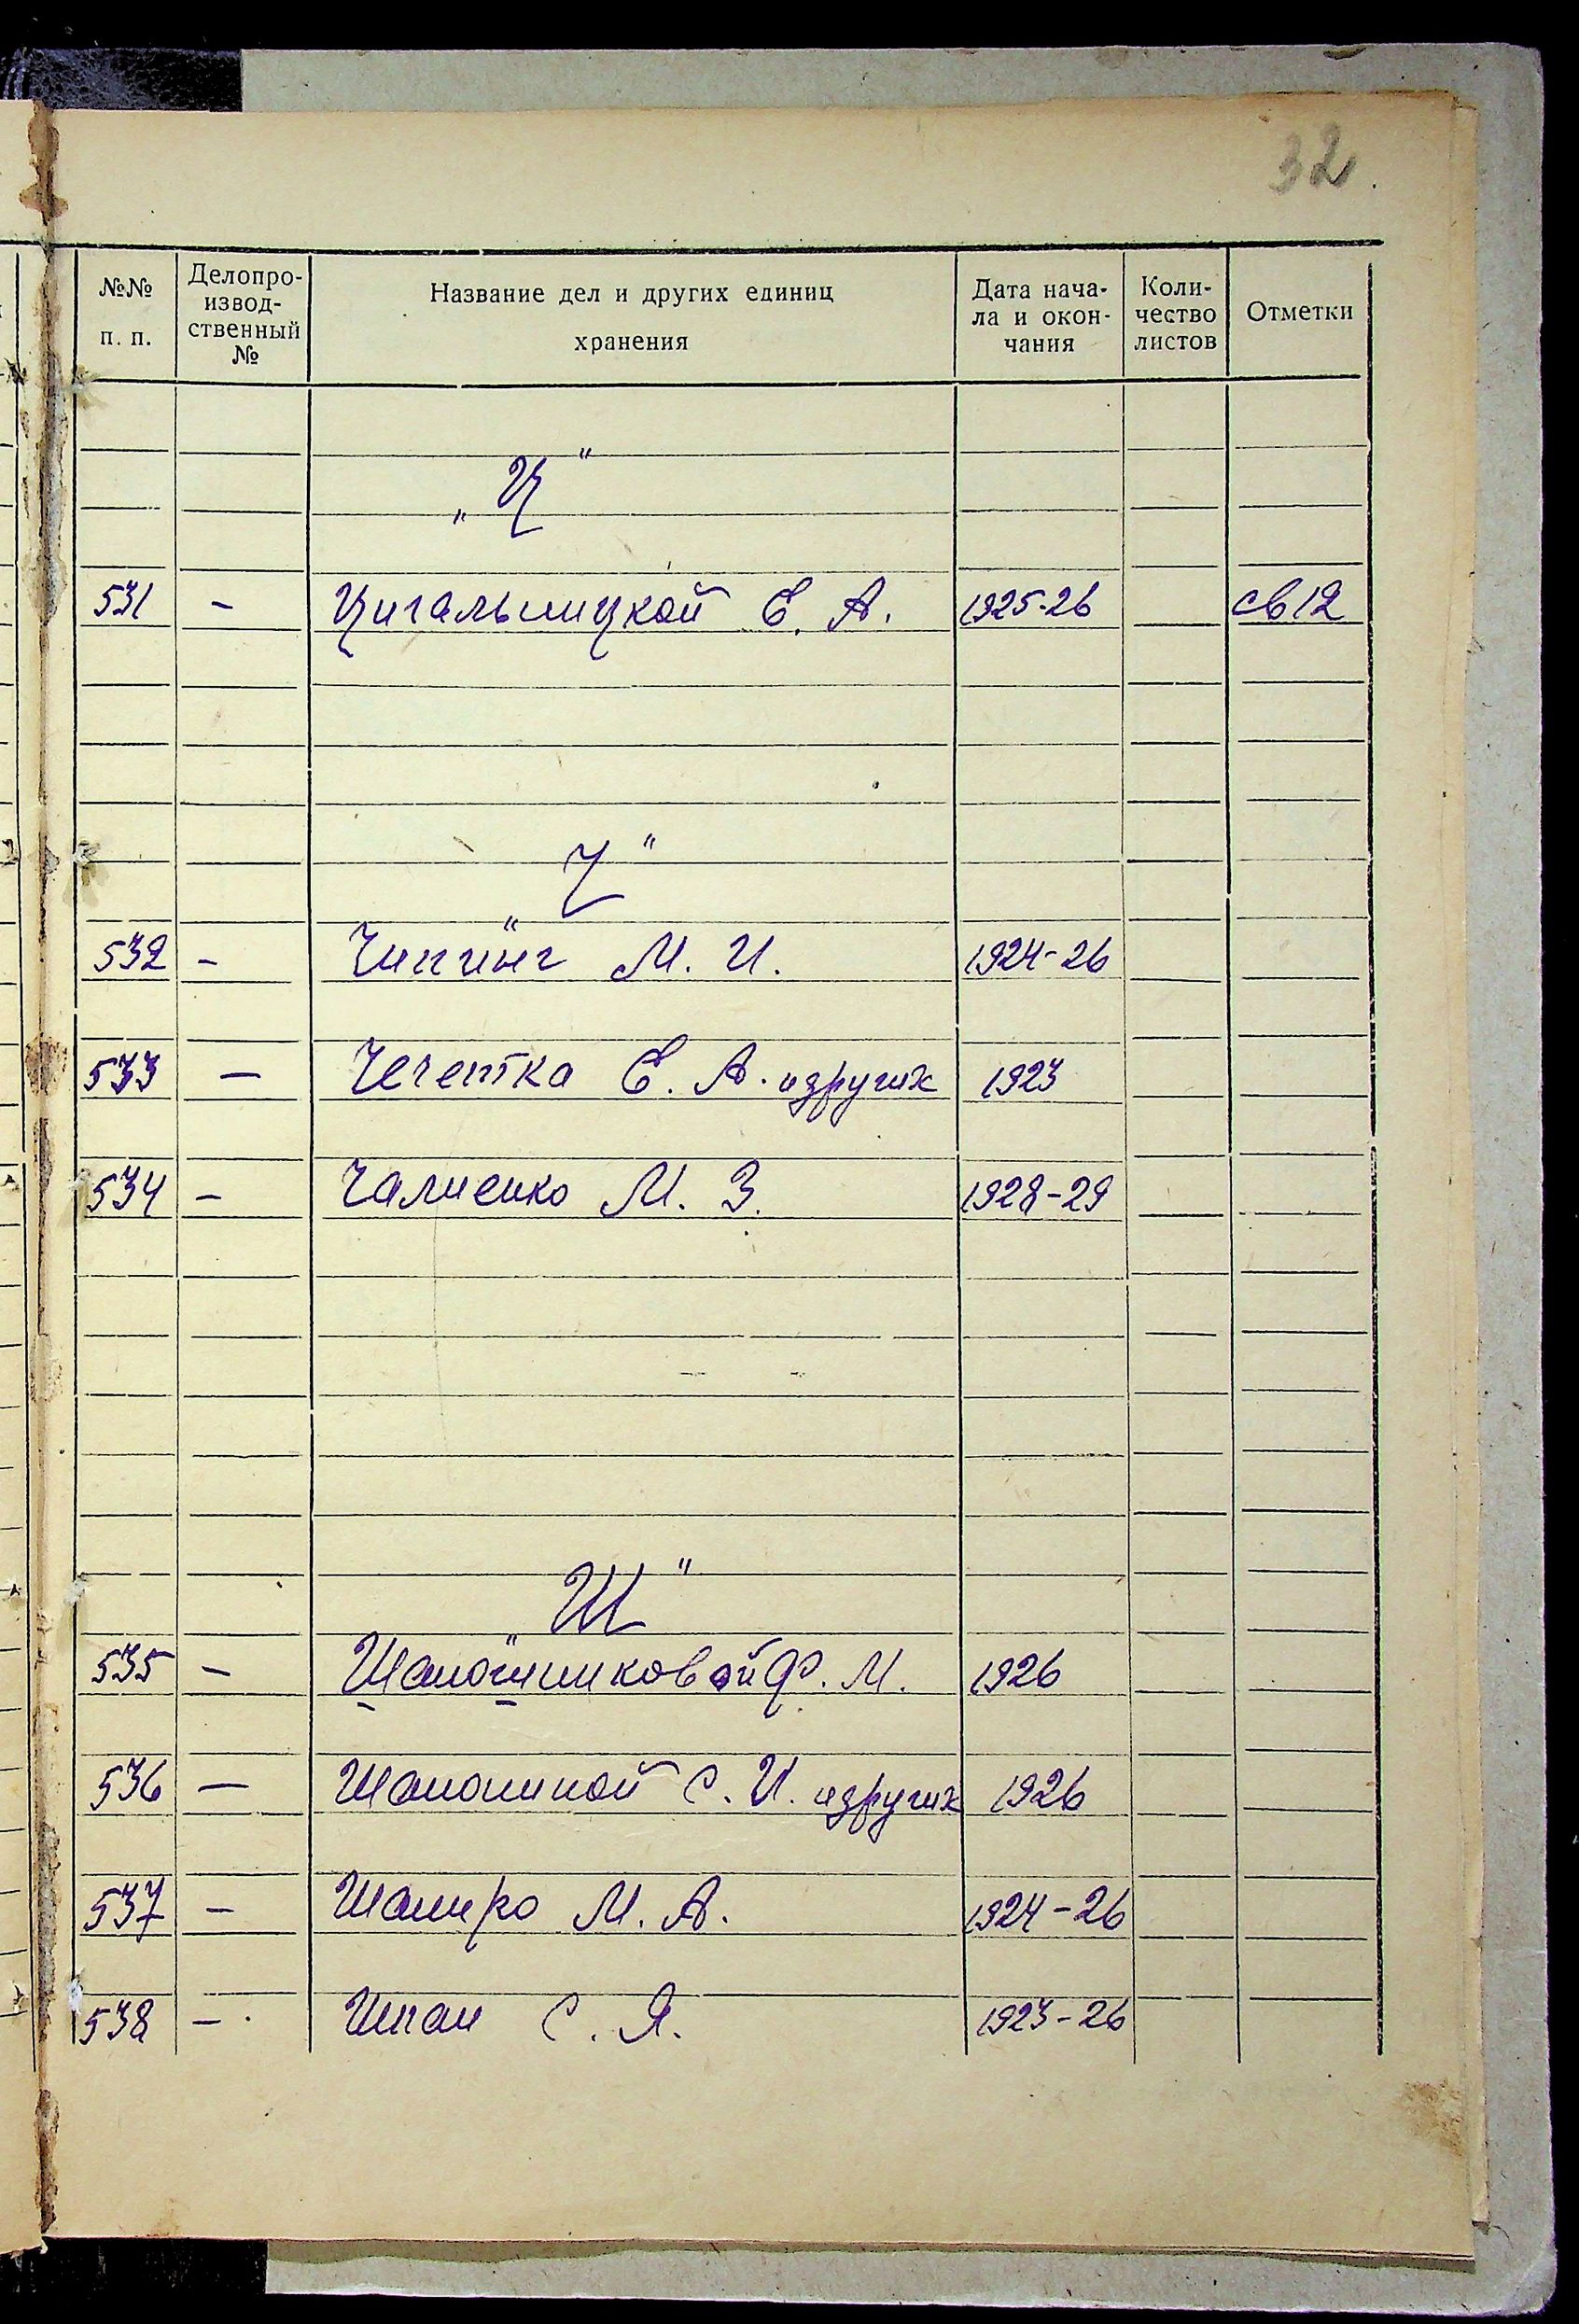 32.
№№ п. п.
Делопро-
извод-
ственный
№
Название дел и других единиц
хранения
Дата нача-
ла и окон-
чания
Коли-
чество
листов
Отметки
„Ц"
531 - Цигальницкой Е. А. 1925-26 св 12
„Ч"
532 - М. И. 1924-26
533 - Чечетка Е. А. и других 1923
534 - М. З. 1928-29
„Ш"
535 - Шапошниковой Ф. М. 1926
536 - С. И. и других 1926
537 - Шапиро М. А. 1924-26
538 - С. Я. 1923-26